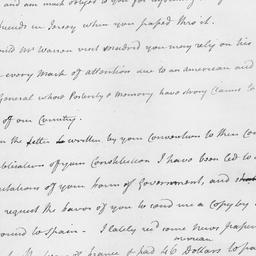 and am much obliged to you for
friends in Jersey when you passed thro' it.
Mr Warren visit you may rely on his
every mark of attention due to an american and
General whose Posterity & memory have strong claims to
of our Country.
In the letter written by your Convention to their Con
publication of your Constitution I have been led to
of your form of Government, and
request the favor of you to send me a Copy by
bound to Spain - I lately red some News paper
of france & paid 46 Dollars